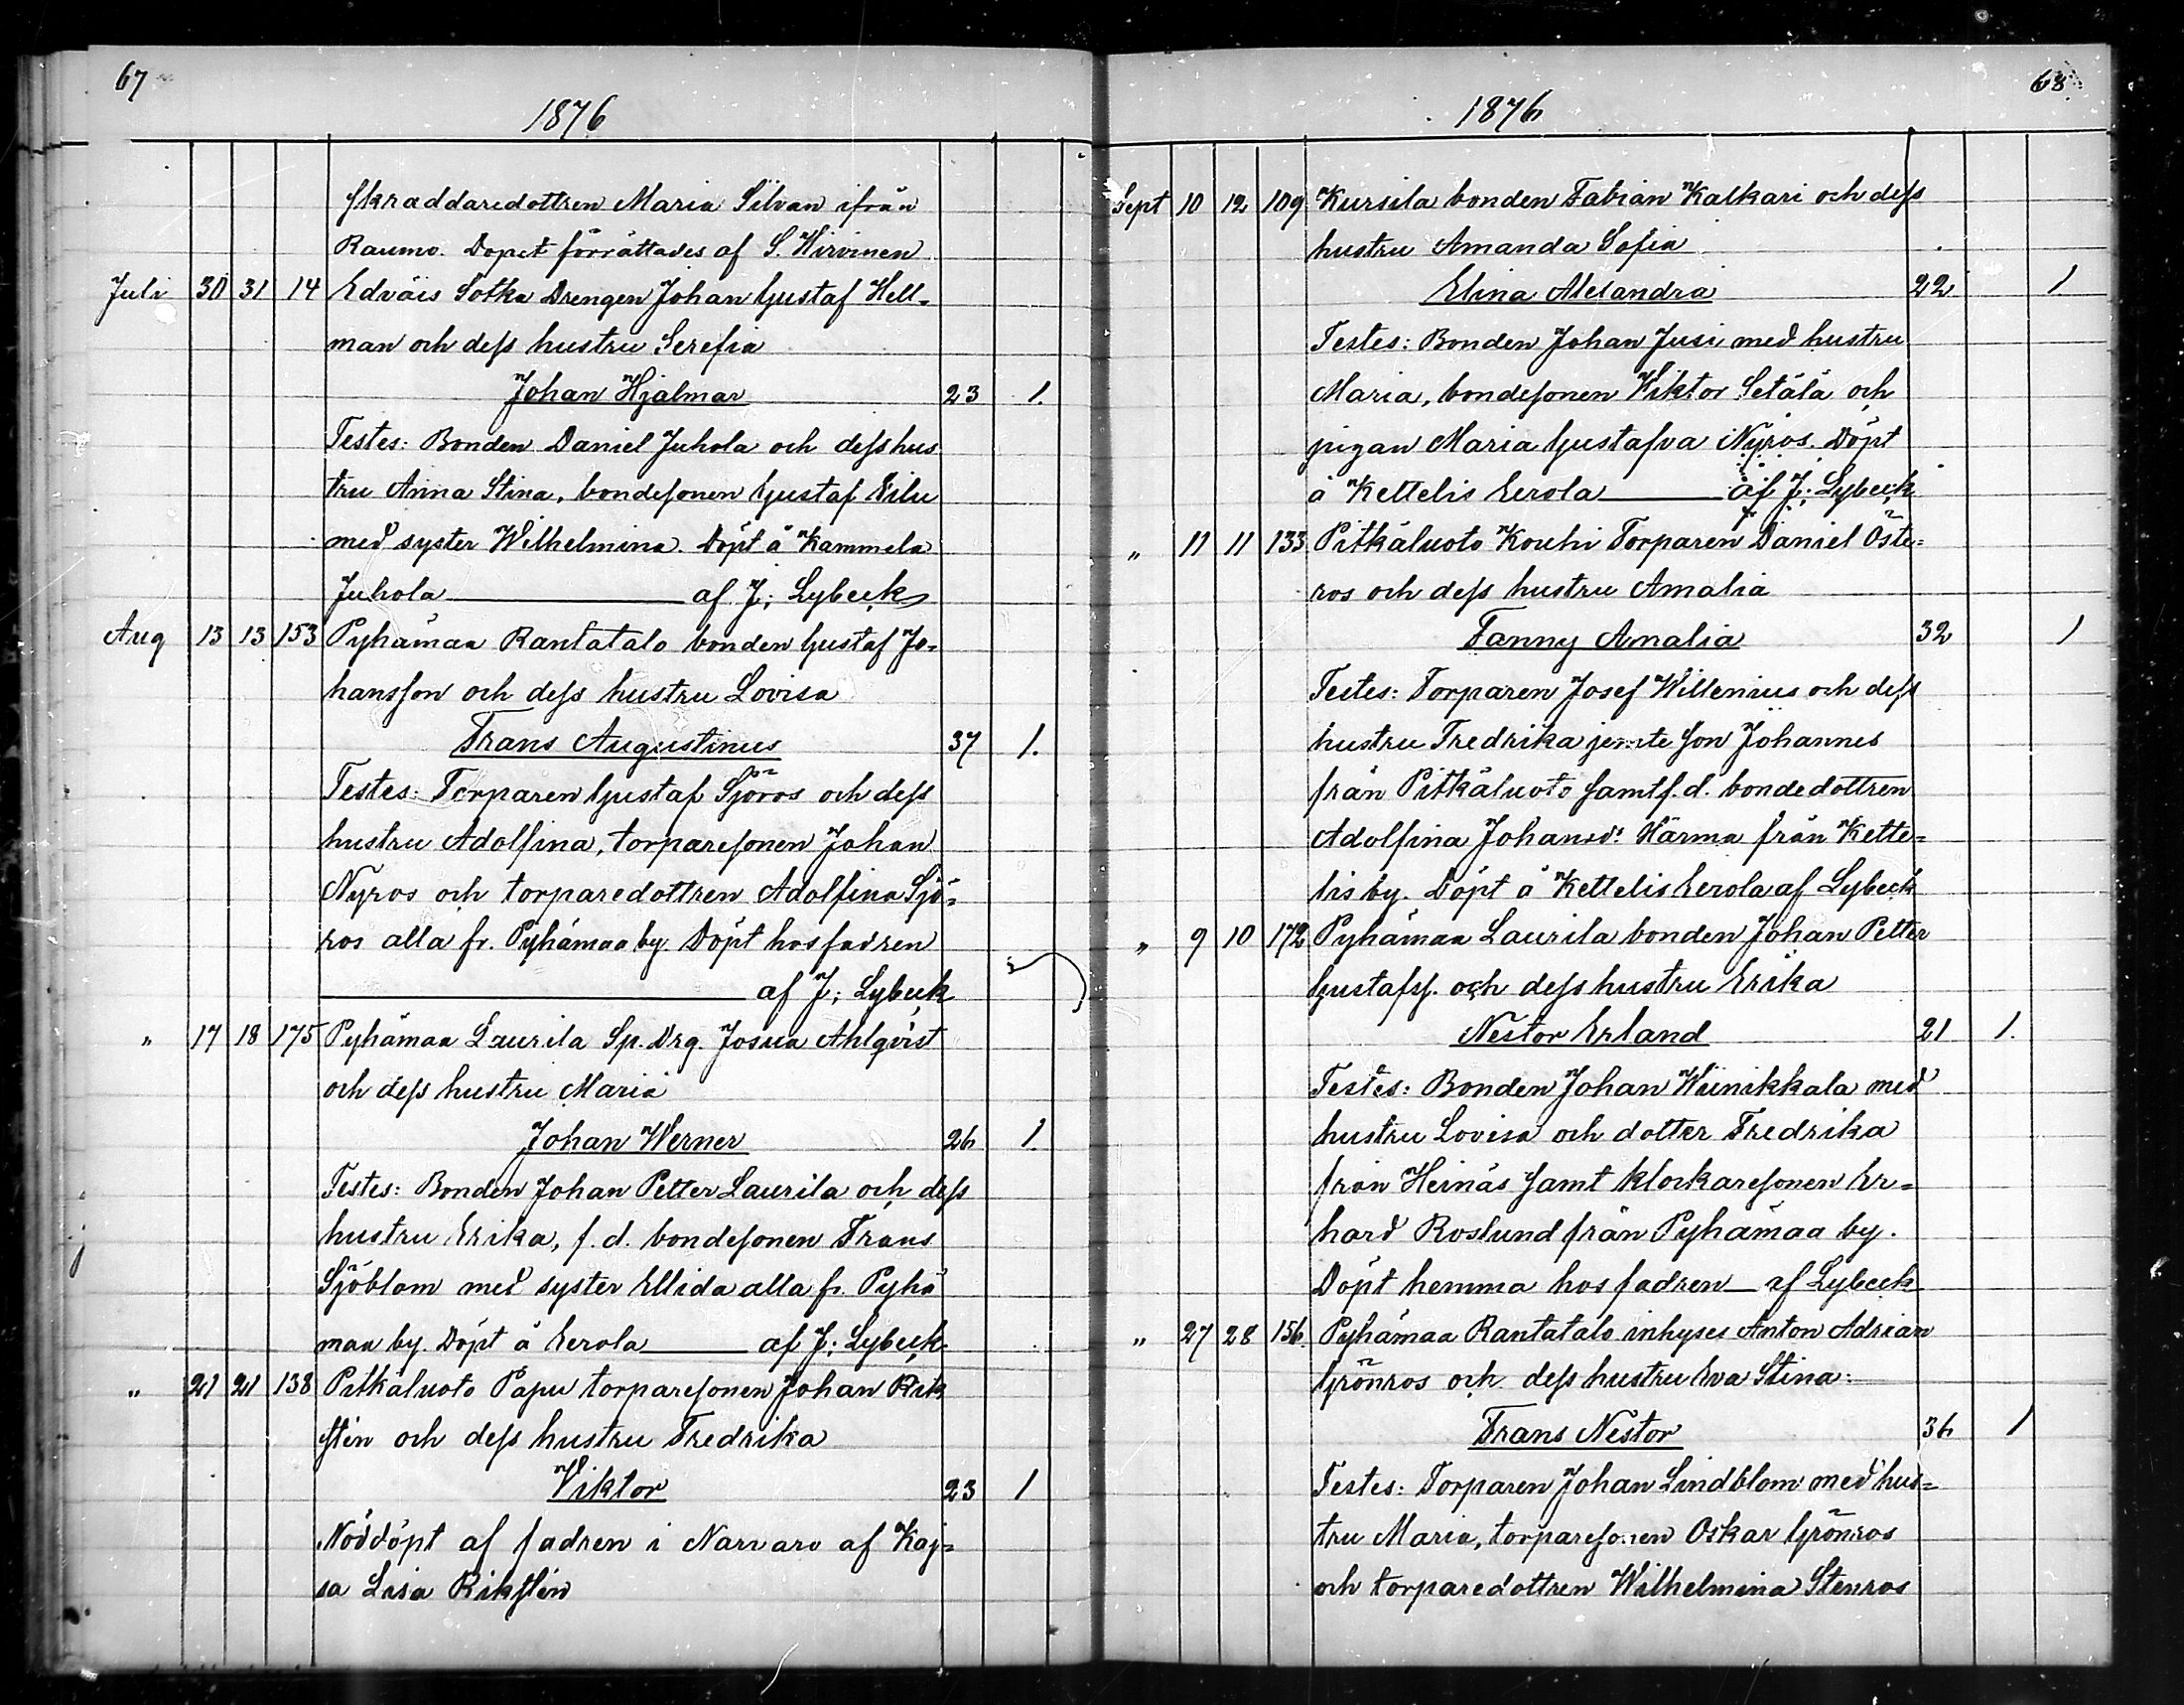 67
1876
skraddaredottren Maria Silvan ifrån
Raumo. Dopet förrättades af S. Hirvinen
Juli 30 31 14 Edväis Sotka Drengen Johan Gustaf Hell-
man och dess hustru Serefia
Johan Hjalmar 23 1.
Testes: Bonden Daniel Juhola och dess hus
tru Anna Stina, bondesonen Gustaf Eilu
med syster Wilhelmina. Döpt å Kammela
Juhola af J. Lybeck
Aug 13 13 153 Pyhämaa Rantatalo bonden Gustaf Jo-
hansson och dess hustru Lovisa
Frans Augustinus 37 1.
Testes: Torparen Gustaf Sjöros och dess
hustru Adolfina, torparesonen Johan
Nyros och torparedottren Adolfina Sjö-
ros alla fr. Pyhämaa by. Döpt hos fadren
af J. Lybeck
" 17 18 175 Pyhämaa Laurila Sp. Drg. Josua Ahlqvist
och dess hustru Maria
Johan Werner 26 1.
Testes: Bonden Johan Petter Laurila och dess
hustru Erika, f.d. bondesonen Frans
Sjöblom med syster Ellida alla fr. Pyhä
maa by. Döpt å Eerola af J. Lybeck
" 21 21 138 Pitkäluoto Papu torparesonen Johan Rik
stén och dess hustru Fredrika
Viktor 23 1
Nöddöpt af fadren i Narvaro af Kaj-
sa Lisa Rikstén
68
1876
Sept 10 12 109 Kursila bonden Fabian Kalkari och dess
hustru Amanda Sofia
Elina Alexandra 22 1
Testes: Bonden Johan Jusi med hustru
Maria, bondesonen Viktor Setälä och
pigan Maria Gustafva Nyros. Döpt
å Kettelis Eerola af J. Lybeck
" 11 11 133 Pitkäluoto Kouhi Torparen Daniel Öste-
ros och dess hustru Amalia
Fanny Amalia 32 1
Testes: Torparen Josef Willenius och dess
hustru Fredrika jemte son Johannes
från Pitkäluoto samt f.d. bondedottren
Adolfina Johansd: Härma från Kette-
lis by. Döpt å Kettelis Eerola af Lybeck
" 9 10 172 Pyhämaa Laurila bonden Johan Petter
Gustafss. och dess hustru Erika
Nestor Erland 21 1.
Testes: Bonden Johan Wiinikkala med
hustru Lovisa och dotter Fredrika
från Heinäs samt klockaresonen Er-
hard Roslund från Pyhämaa by.
Döpt hemma hos fadren af Lybeck
" 27 28 156. Pyhämaa Rantatalo inhyses Anton Adrian
Grönros och dess hustru Eva Stina:
Frans Nestor 36 1
Testes: Torparen Johan Lindblom med hus-
tru Maria, torparesonen Oskar Grönros
och torparedottren Wilhelmina Stenros